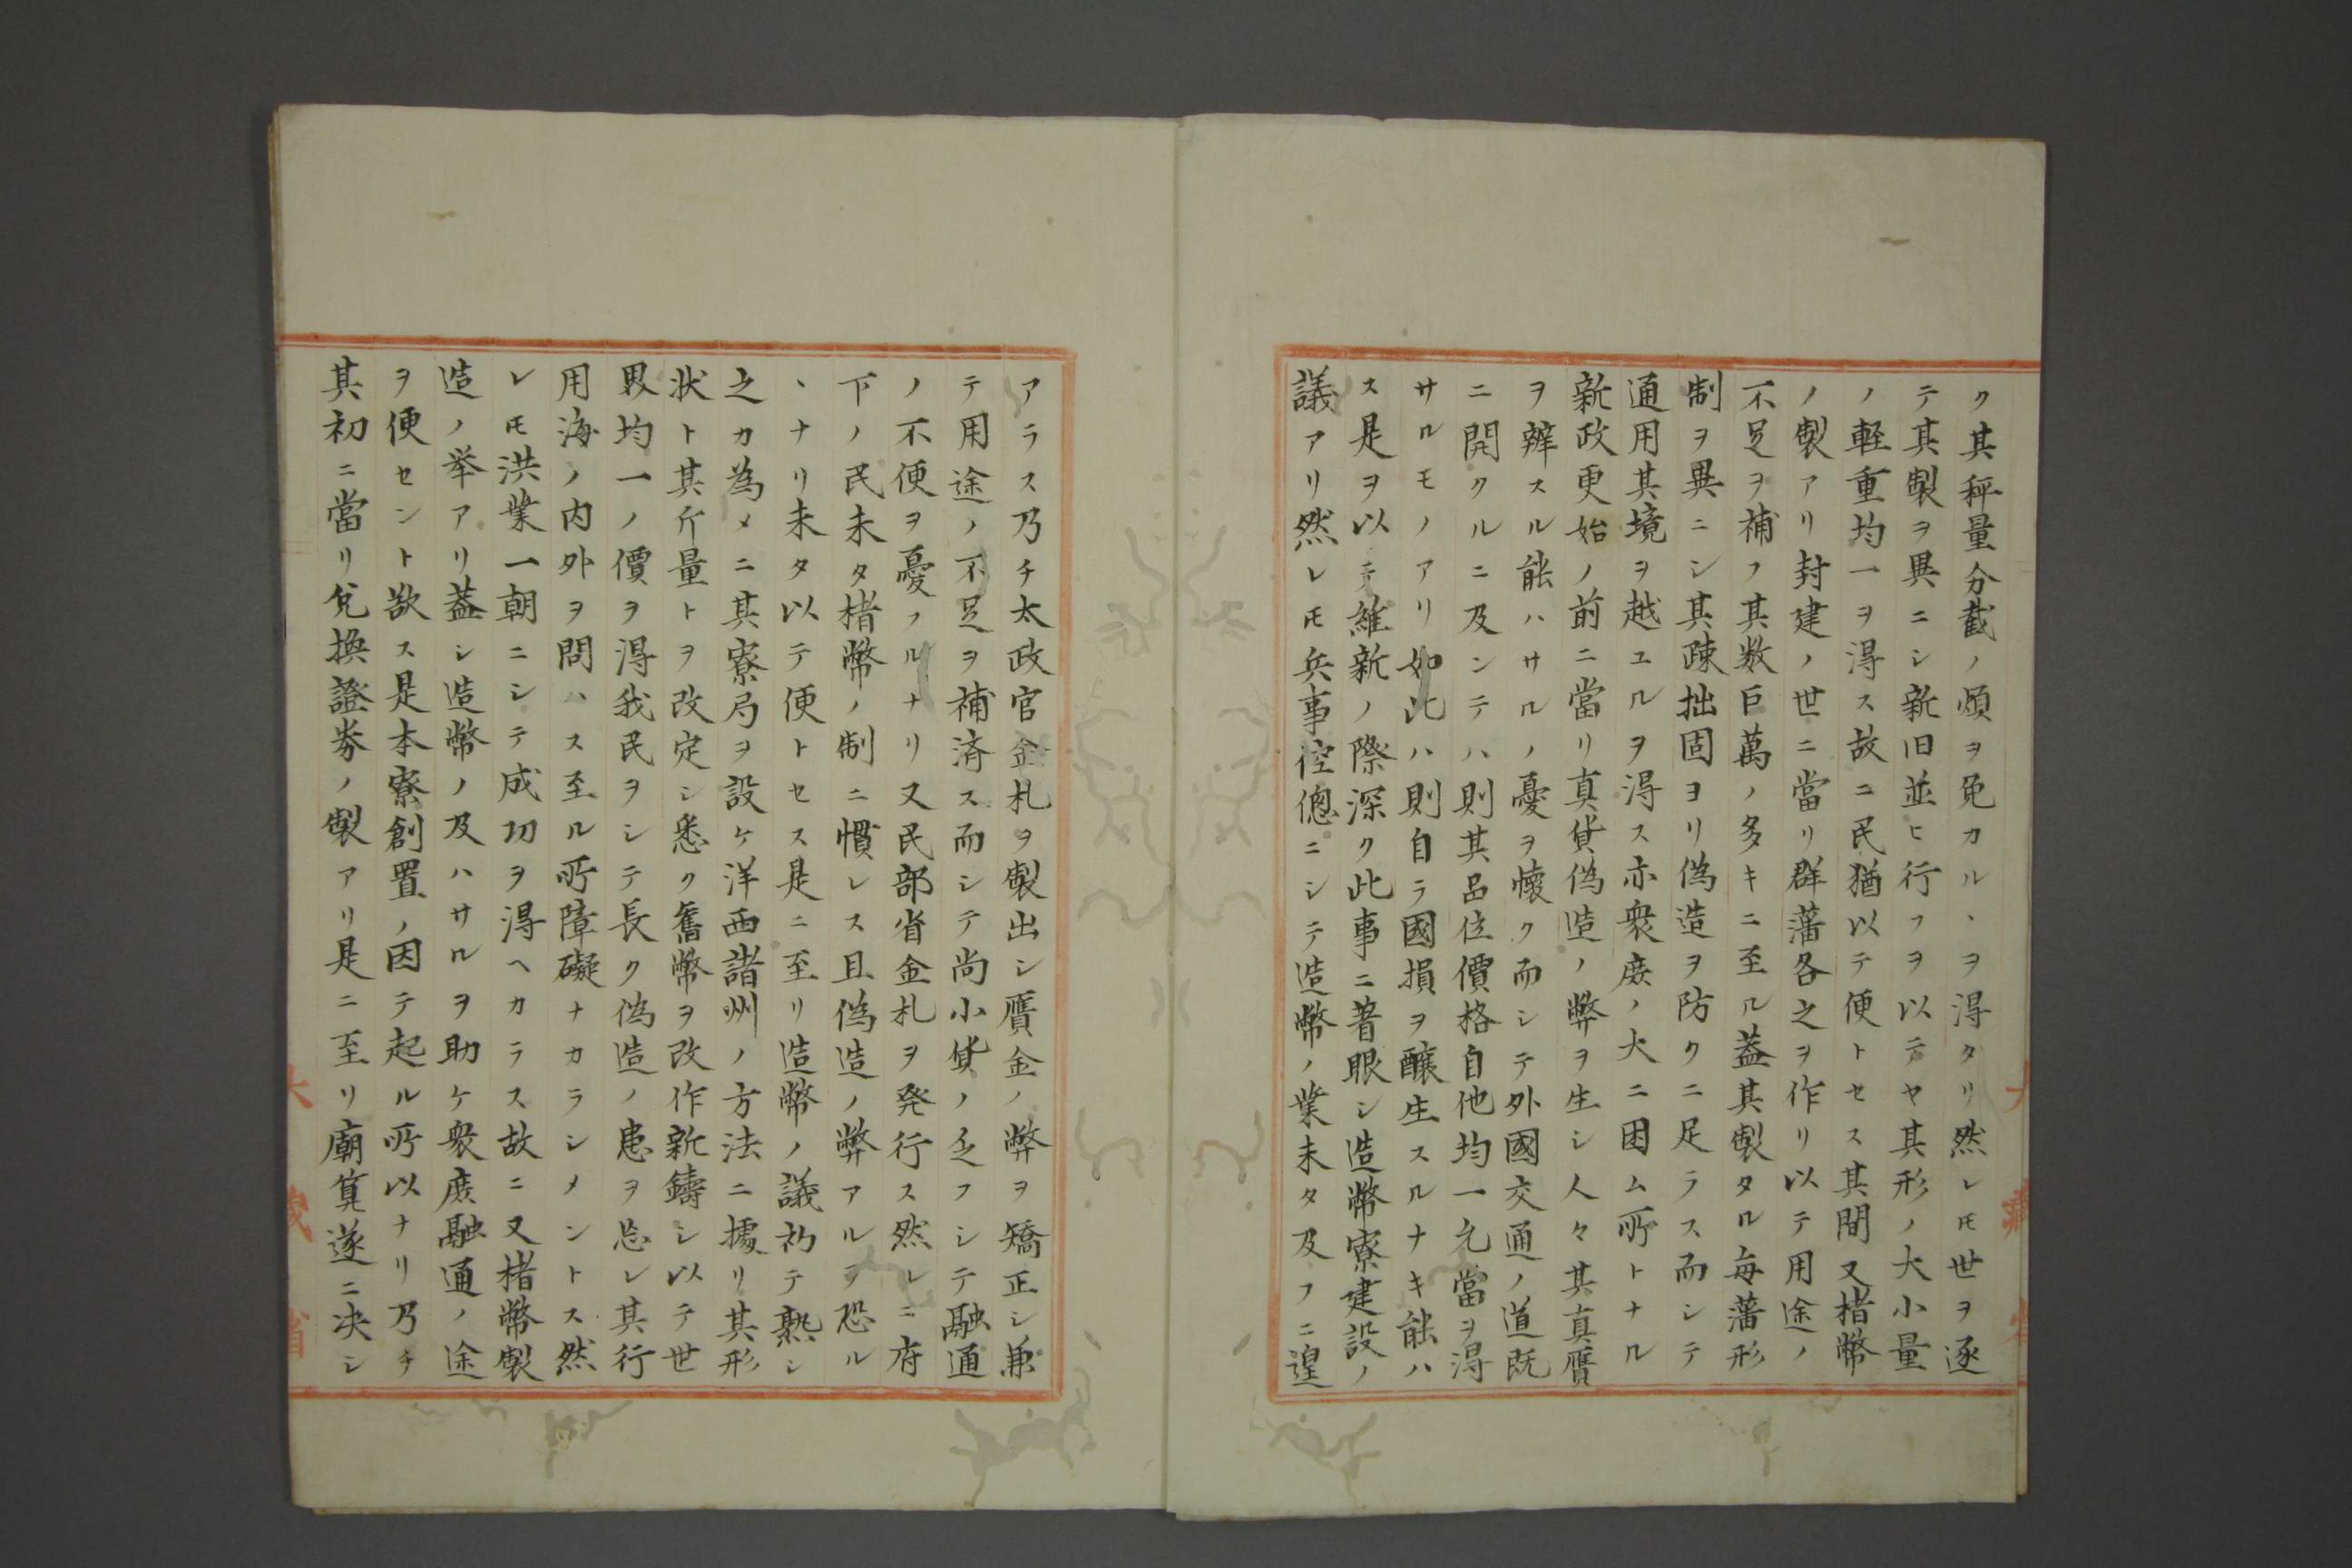 ク其秤量分截ノ煩ヲ免カルヽヲ得タリ然レ𪜈世ヲ逐
テ其製ヲ異ニシ新旧並ヒ行フヲ以テヤ其形ノ大小量
ノ軽重均一ヲ得ス故ニ民猶以テ便トセス其間又楮幣
ノ製アリ封建ノ世ニ當リ群藩各之ヲ作リ以テ用途ノ
不足ヲ補フ其数巨萬ノ多キニ至ル蓋其製タル毎藩形
制ヲ異ニシ其疎拙固ヨリ偽造ヲ防クニ足ラス而シテ
通用其境ヲ越ユルヲ得ス亦衆庻ノ大ニ困ム所トナル
新政更始ノ前ニ當リ真貨偽造ノ弊ヲ生シ人々其真贋
ヲ辨スル能ハサルノ憂ヲ懐ク而シテ外國交通ノ道既
ニ開クルニ及ンテハ則其品位價格自他均一允當ヲ得
サルモノアリ如此ハ則自ラ國損ヲ醸生スルナキ能ハ
ス是ヲ以テ維新ノ際深ク此事ニ著眼シ造幣寮建設ノ
議アリ然レ𪜈兵事倥偬ニシテ造幣ノ業未タ及フニ遑
アラス乃チ太政官金札ヲ製出シ贋金ノ弊ヲ矯正シ兼
テ用途ノ不足ヲ補済ス而シテ尚小貨ノ乏フシテ融通
ノ不便ヲ憂フルナリ又民部省金札ヲ発行ス然レニ府
下ノ民未タ楮幣ノ制ニ慣レス且偽造ノ弊アルヲ恐ル
ヽナリ未タ以テ便トセス是ニ至リ造幣ノ議初テ熟シ
之カ為メニ其寮局ヲ設ケ洋西諸州ノ方法ニ據リ其形
状ト其斤量トヲ改定シ悉ク舊幣ヲ改作新鑄シ以テ世
界均一ノ價ヲ得我民ヲシテ長ク偽造ノ患ヲ忘レ其行
用海ノ内外ヲ問ハス至ル所障礙ナカラシメントス然
レ𪜈洪業一朝ニシテ成功ヲ得ヘカラス故ニ又楮幣製
造ノ挙アリ蓋シ造幣ノ及ハサルヲ助ケ衆庻融通ノ途
ヲ便セント欲ス是本寮創置ノ因テ起ル所以ナリ乃チ
其初ニ當リ兌換證券ノ製アリ是ニ至リ廟算遂ニ决シ
大藏省